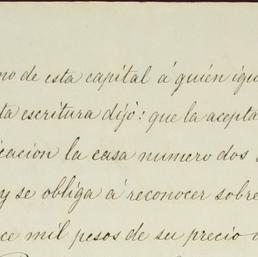 no de esta capital á quién igu
ta escritura dijó: que la acepta
cacion la casa numero dos
y se obliga á reconocer sobre
ce mil pesos de su precio